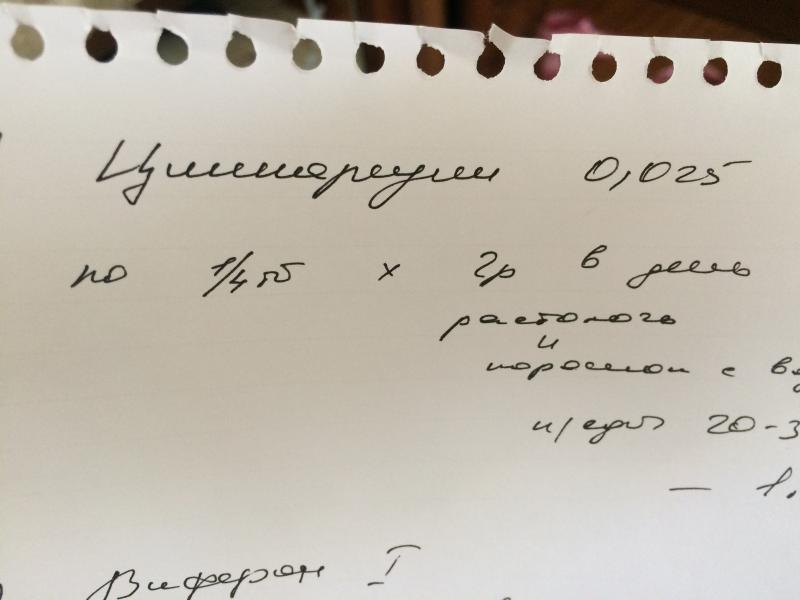 Циннаризин 0,025
по 1/4 тб х 2р в день
растолочь
и
порошок с в
20-3
— 1.
Виферон I